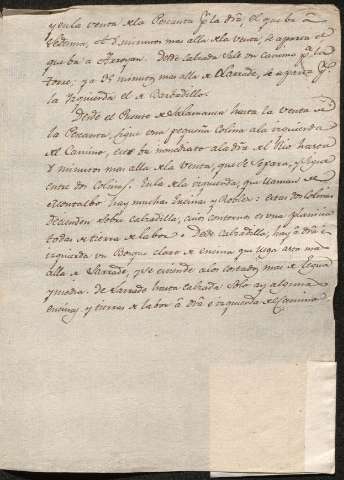 y en la venta de la Pescanta pr. la dra. el que ba â
Ledesma, et 8 minutos mas alla de la venta, se aparta el
que ba â Arroyan. desde Calzada Sale un camino pa. la
Torre; ya 25 minutos mas alla de Larrade, se aparta pr.
la Izquierda el de Barbadillo.
Desde el Puente de Salamanca hasta la venta de
la Pescanta, Sigue una pequeña Colina ala izquierda
del Camino, este ba inmediato ala dra. del Rio hasta
8 minutos mas alla de la Venta, que se Separa, y Sigue
entre dos Colinas. En la de la izquierda, que llaman de
hay muchas Encinas y Robles: estas dos Colinas
descienden Sobre Calzadilla, cuios contornos es una planicie
todas de tierra de labor. Desde Calzadilla, hay â dra. e
izquierda un Bosque claro de encina que llega asta mas
alla de Larrade, y se estiende alos costados mas de legua
y media. de Larrade hasta Calzada Solo ay alguna
encina, y tierras de labor â dra. e izquierda del Camino